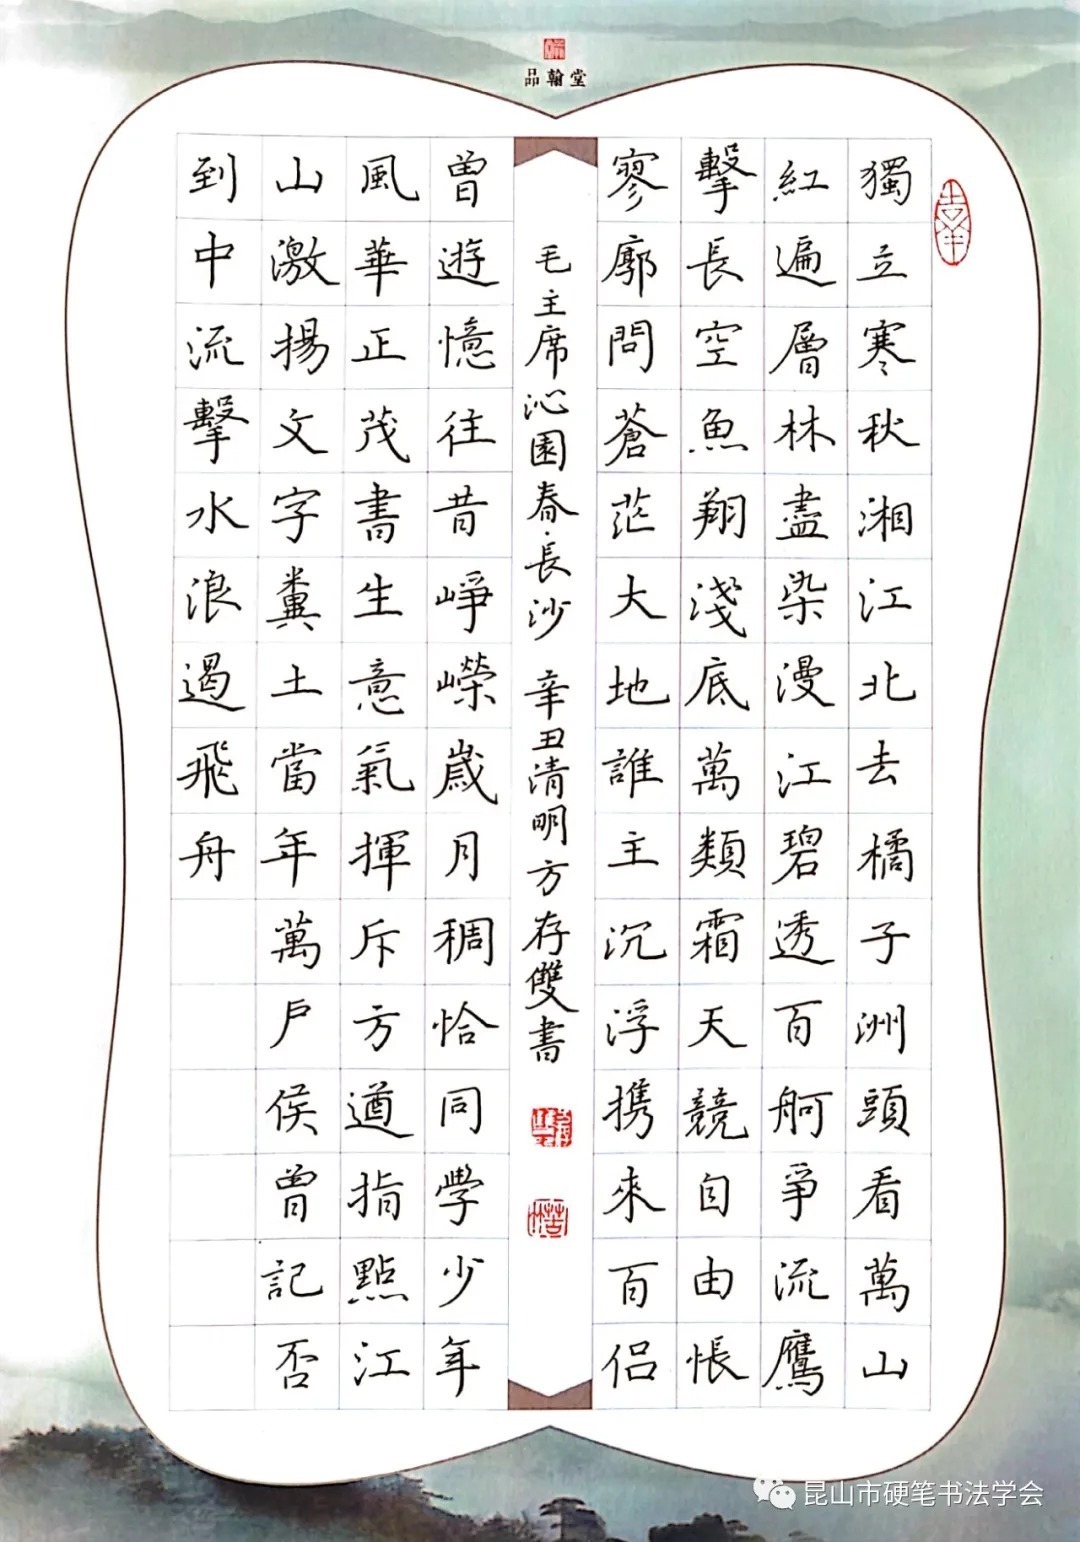 品翰堂
獨立寒秋湘江北去橘子洲頭看萬山
紅遍層林盡染漫江碧透百舸爭流鷹
擊長空魚翔淺底萬類霜天競自由悵
寥廓問蒼茫大地誰主沉浮携來百侣
毛主席沁園春·長沙 辛丑清明方存雙書
曾遊憶往昔崢嶸歲月稠恰同學少年
風華正茂書生意氣揮斥方遒指點江
山激揚文字糞土當年萬戶侯曾記否
到中流擊水浪遏飛舟
昆山市硬笔书法学会